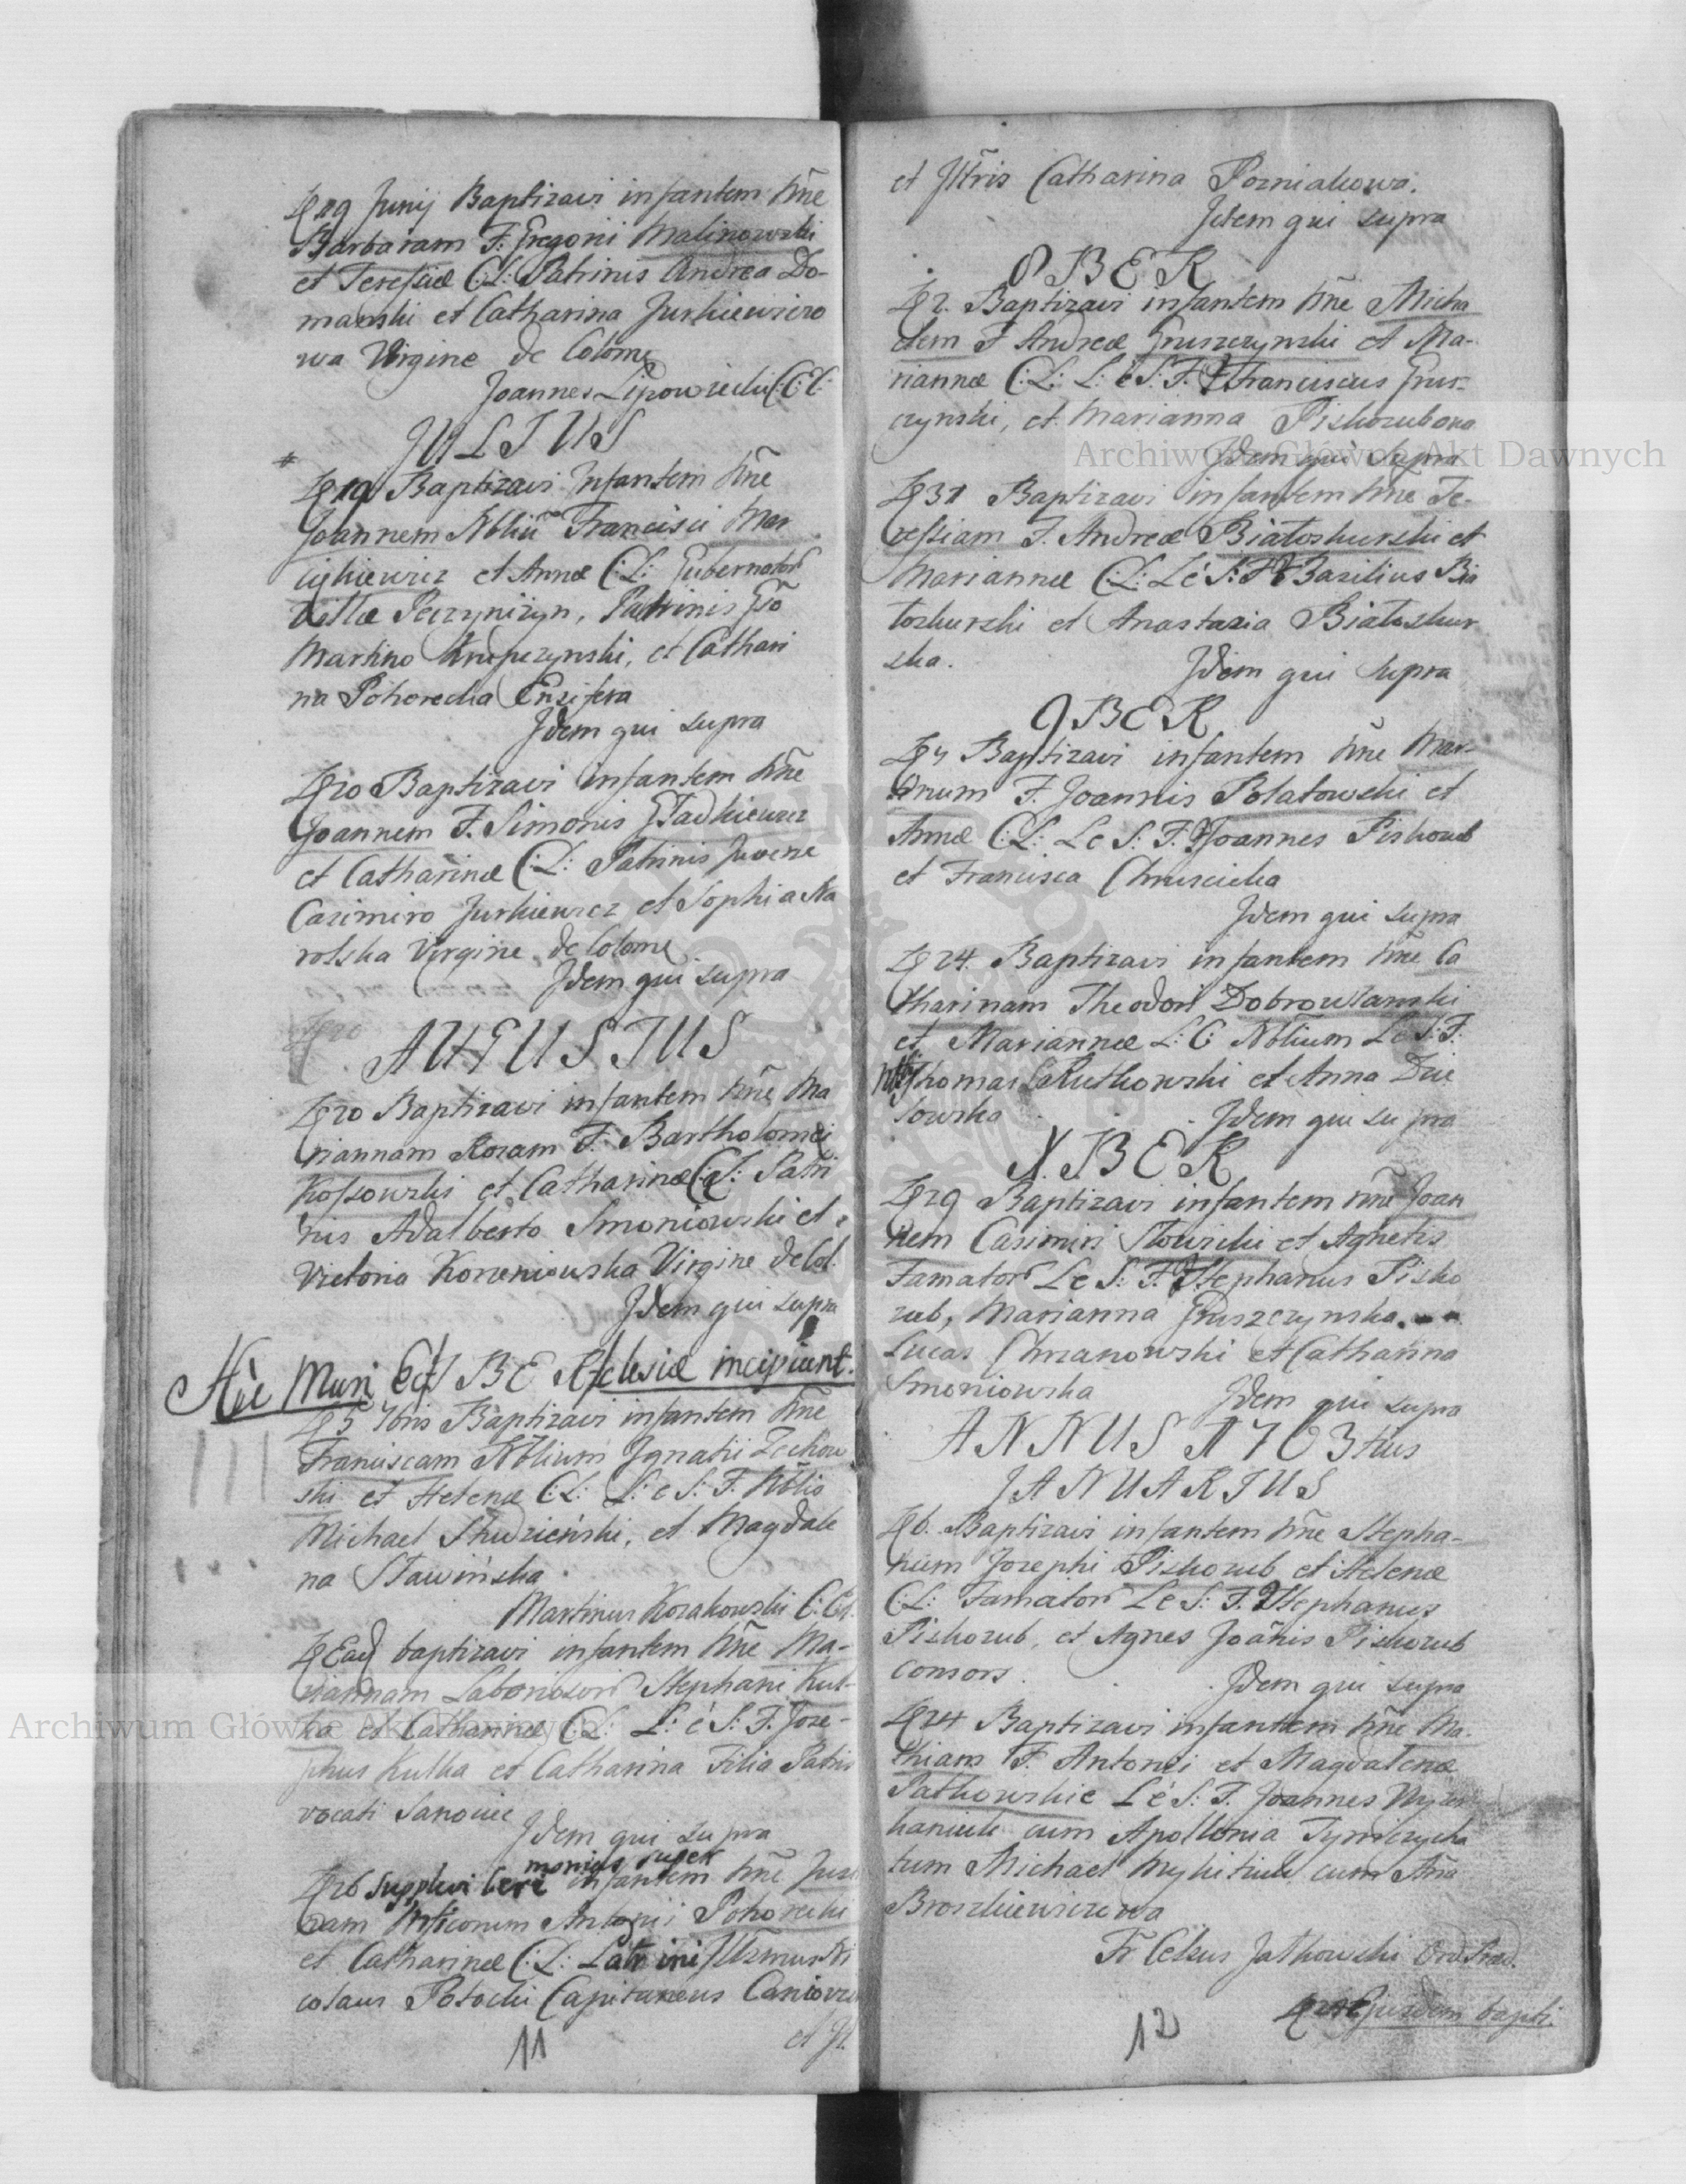 19 Junij Baptizavi infantem nne
Barbaram F: Gregorii Malinowski
et Teressiæ C:L: Patrinis Andrea Do-
manski et Catharina Jurkiewiczo
wa Virgine de Colome
Joannes Lipowiecki C:C:C:
JULIUS
19 Baptizavi Infantem nne
Joannem Nbliu Francisci Mar
cijkiewicz et Annæ C:L: Gubernator
Villæ Peczyniżyn, Patrinis Gso
Martino Krupczynski, et Cathari
na Pohorecka Ensifera
Idem qui supra
20 Baptizavi infantem nne
Joannem F. Simonis Gładkiewicz
et Catharinæ C:L: Patrinis Juvene
Casimiro Jurkiewicz et Sophia Na
rolska Virgine de Colome
Idem qui supra
AUGUSTUS
20 Baptizavi infantem nne Ma
riannam Rozam F: Bartholomei
Kossowski et Catharinæ C:L: Patri
nis Adalberto Smoniowski et
Victoria Korzeniowska Virgine de Col.
Idem qui supra
Hic Muri Ecclesiæ incipiunt.
7BER
5 7bris Baptizavi infantem nne
Franciscam Nblium Ignatii Zechow
ski et Helenæ C:L: L: e S: F. Nblis
Michael Studzieński, et Magdale
na Sławińska
Martinus Kozakowski C:C:
Ead baptizavi infantem nne Ma-
riannam Laboriosor Stephani Kul-
ka et Catharinæ C:L: L: é S: F. Jose-
phus Kulka et Catharina Filia Patris
vocati Sanoiec
Idem qui supra
26 supplevi cere monias super infantem nne Jus
nam Mficorum Antonii Pohorecki
et Catharinæ C:L: Patrini Illmus Ni
colaus Potocki Capitaneus Caniovi
et Il.
11
et Illris Catharina Pozniakowa.
Idem qui supra
8BER
2. Baptizavi infantem nne Micha
elem F Andreæ Gruszczynski et Ma-
riannæ C:L: L: é S: F. Franciscus Grus-
czynski, et Marianna Piskozubowa
Idem qui supra
31 Baptizavi infantem nne Te-
ressiam F. Andreæ Białoskurski et
Mariannæ C:L: L é S: F. Basilius Bia
łoskurski et Anastazia Białoskur
ska.
Idem qui supra
9BER
4 Baptizavi infantem nne Mar-
tinum F. Joannis Połatowski et
Annæ C:L: L e S: F. Joannes Piskozub
et Francisca Chruscicka
Idem qui supra
24. Baptizavi infantem nne Ca
tharinam Theodori Dobrowlanski
et Mariannæ L: C: Nblium L e S: F:
Thomas Rutkowski et Anna Dzie
towska
Idem qui supra
X.BER
29 Baptizavi infantem nne Joan
nem Casimiri Słowicki et Agnetis
Famator L e S: F. Stephanus Pisko
zub, Marianna Gruszczynska.
Lucas Chrzanowski et Catharina
Smoniowska
Idem qui supra
ANNUS 1763tius
JANUARIUS
6. Baptizavi infantem nne Stepha-
num Josephi Piskozub et Helenæ
C:L: Famator L e S: F. Stephanus
Piskozub, et Agnes Joānis Piskozub
consors.
Idem qui supra
24 Baptizavi infantem nne Ma-
thiam F. Antonii et Magdalenæ
Patkowskie L é S: F. Joannes
cum Apollonia Tymczycha
tum Michael Mykitiuk cum Ana
Broszkiewiczowa
Fr Celsus Jatkowski Ord Præd.
Ejusdem bapti.
12
Archiwum Główne Akt Dawnych
Archiwum Główne Akt Dawnych